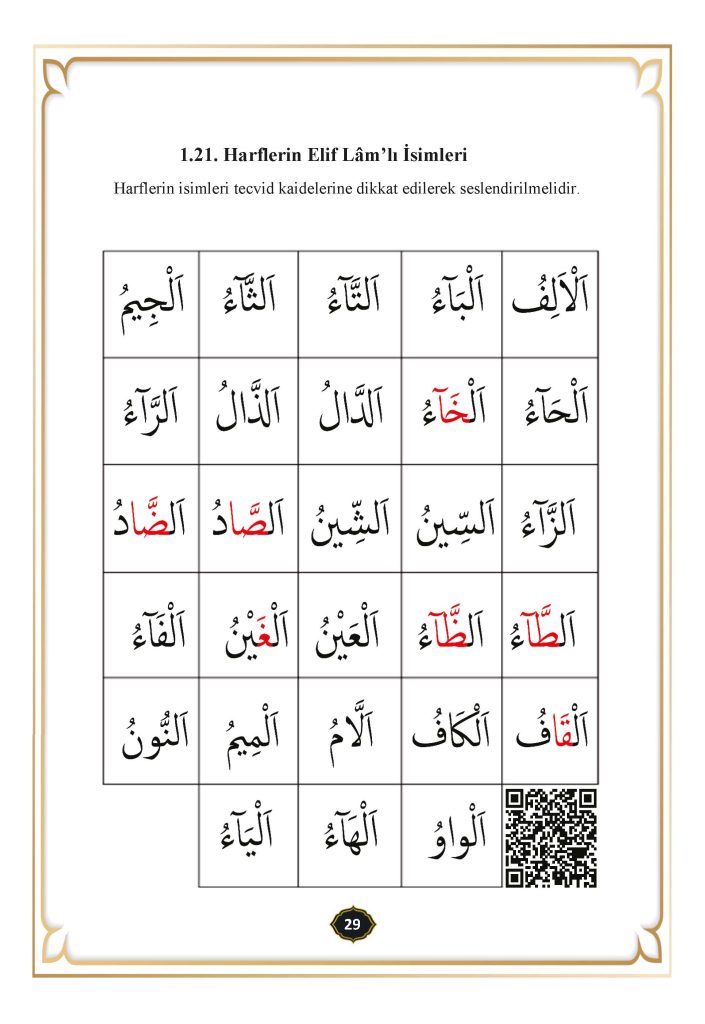 1.21. Harflerin Elif Lâm’lı İsimleri
Harflerin isimleri tecvid kaidelerine dikkat edilerek seslendirilmelidir.
اَلْاَلِفُ اَلْبَٓاءُ اَلتَّٓاءُ اَلثَّٓاءُ اَلْجِيمُ
اَلْحَٓاءُ اَلْخَٓاءُ اَلدَّالُ اَلذَّالُ اَلرَّٓاءُ
اَلزَّٓاءُ اَلسِّينُ اَلشِّينُ اَلصَّادُ اَلضَّادُ
اَلطَّٓاءُ اَلظَّٓاءُ اَلْعَيْنُ اَلْغَيْنُ اَلْفَٓاءُ
اَلْقَافُ اَلْكَافُ اَلَّامُ اَلْمِيمُ اَلنُّونُ
اَلْواوُ اَلْهَٓاءُ اَلْيَٓاءُ
29